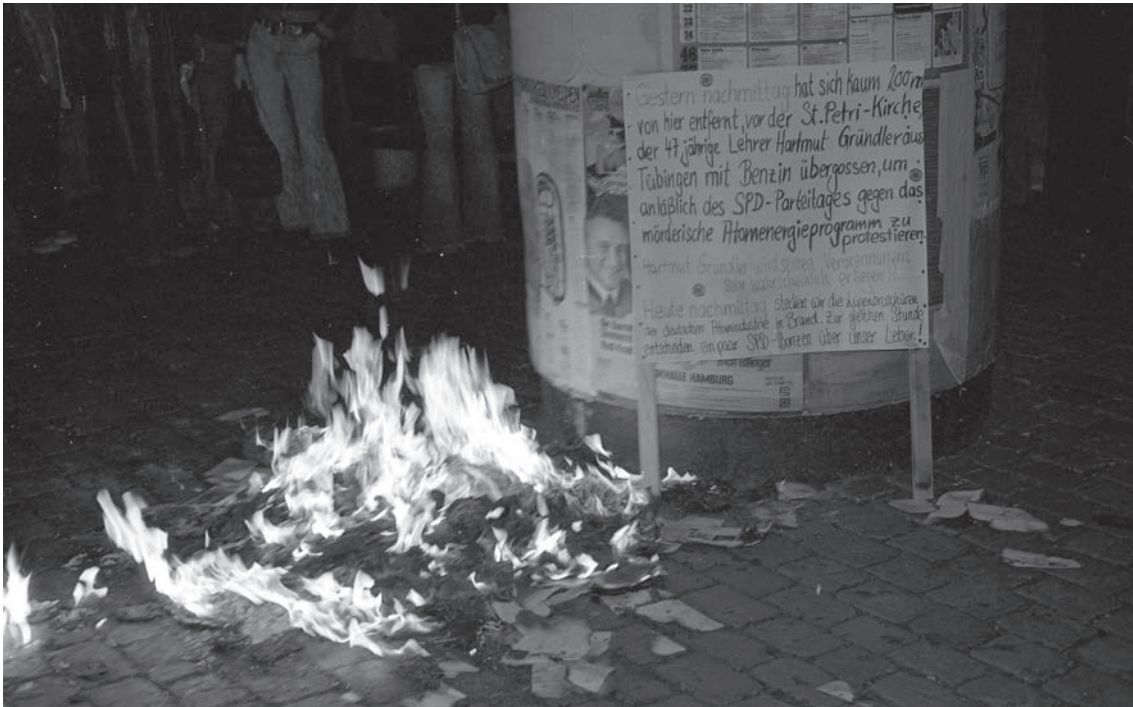 Gestern nachmittag hat sich kaum 200m
von hier entfernt, vor der St. Petri-Kirche,
der 47 jährige Lehrer Hartmut Gründler aus
Tübingen mit Benzin übergossen, um
anläßlich des SPD-Parteitages gegen das
mörderische Atomenergieprogramm zu
protestieren.
Hartmut Gründler wird seinen Verbrennungen
sehr wahrscheinlich erliegen!
Heute nachmittag stecken wir die Lügenbroschüren
der deutschen Atomindustrie in Brand. Zur gleichen Stunde
entscheiden ein paar SPD-Bonzen über unser Leben!
HAMBURG